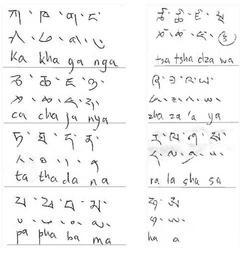 ཀ་ཁ་ག་ང་
ཀ་ཁ་ག་ང་
ka kha ga nga
ཅ་ཆ་ཇ་ཉ་
ཅ་ཆ་ཇ་ཉ་
ca cha ja nya
ཏ་ཐ་ད་ན་
ཏ་ཐ་ད་ན་
ta tha da na
པ་ཕ་བ་མ་
པ་ཕ་བ་མ་
pa pha ba ma
ཙ་ཚ་ཛ་ཝ
ཙ་ཚ་ཛ་
tsa tsha dza wa
ཞ་ཟ་འ་ཡ་
ཞ་ཟ་འ་ཡ་
zha za 'a ya
ར་ལ་ཤ་ས་
ར་ལ་ཤ་ས་
ra la sha sa
ཧ་ཨ་
ཧ་ཨ་
ha a